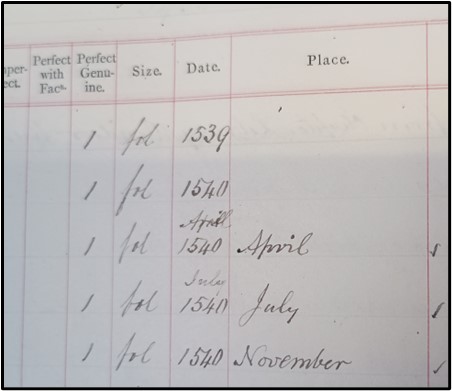 Imper-
fect.
Perfect
with
Facs.
Perfect
Genu-
ine.
Size.
Date.
Place.
1 fol 1539
1 fol 1540
April
1 fol 1540 April
July
1 fol 1540 July
1 fol 1540 November